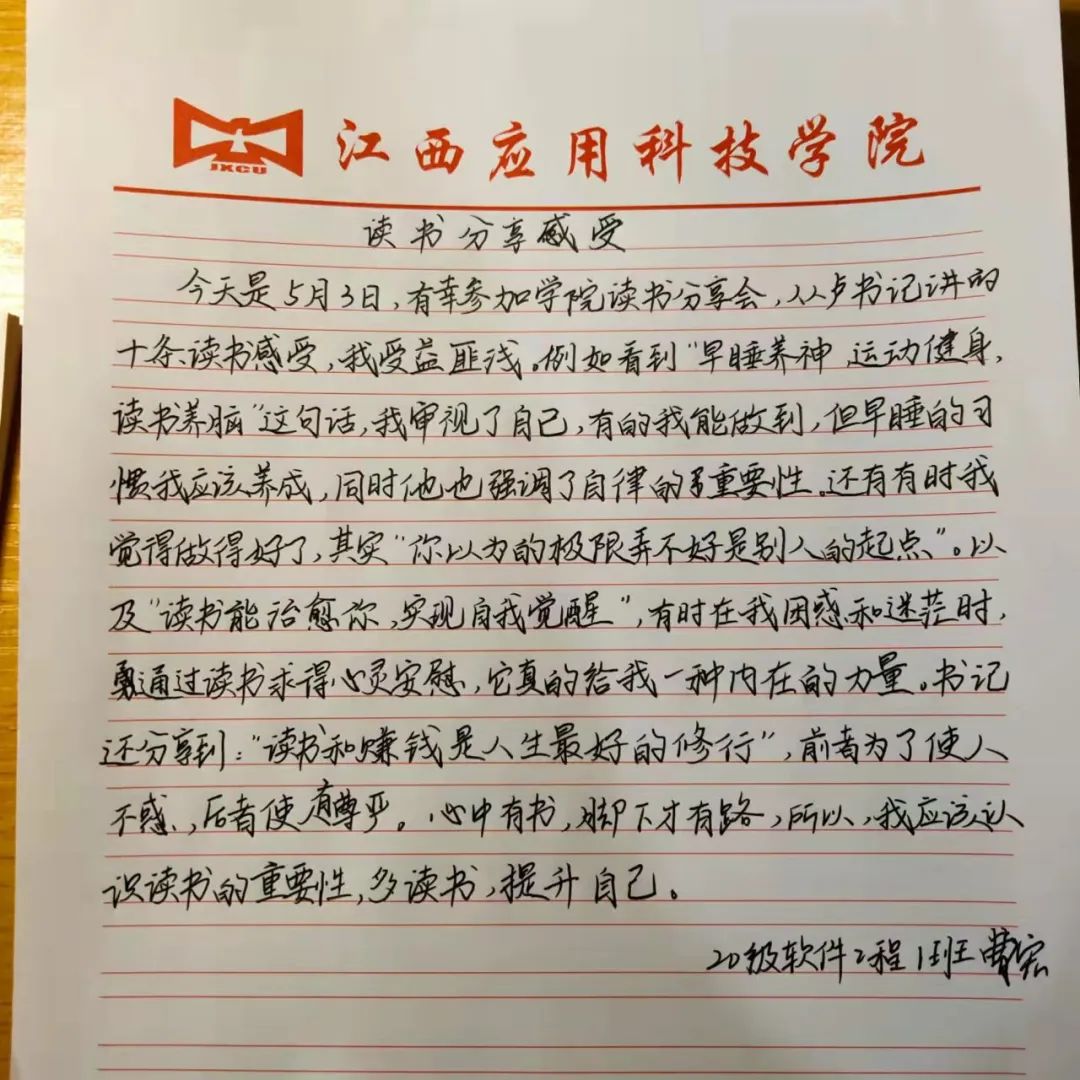 JXCU
江西应用科技学院
读书分享感受
今天是5月3日，有幸参加学院读书分享会，从卢书记讲的
十条读书感受，我受益匪浅。例如看到“早睡养神 运动健身，
读书养脑”这句话，我审视了自己，有的我能做到，但早睡的习
惯我应该养成，同时他也强调了自律的重要性。还有有时我
觉得做得好了，其实“你以为的极限弄不好是别人的起点”。以
及“读书能治愈你，实现自我觉醒”，有时在我困惑和迷茫时，
通过读书求得心灵安慰，它真的给我一种内在的力量。书记
还分享到：“读书和赚钱是人生最好的修行”，前者为了使人
不惑，后者使有尊严。心中有书，脚下才有路，所以，我应该认
识读书的重要性，多读书，提升自己。
20级软件工程1班 曹宏